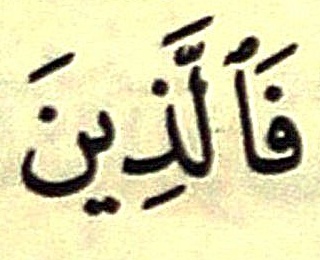 فَٱلَّذِينَ